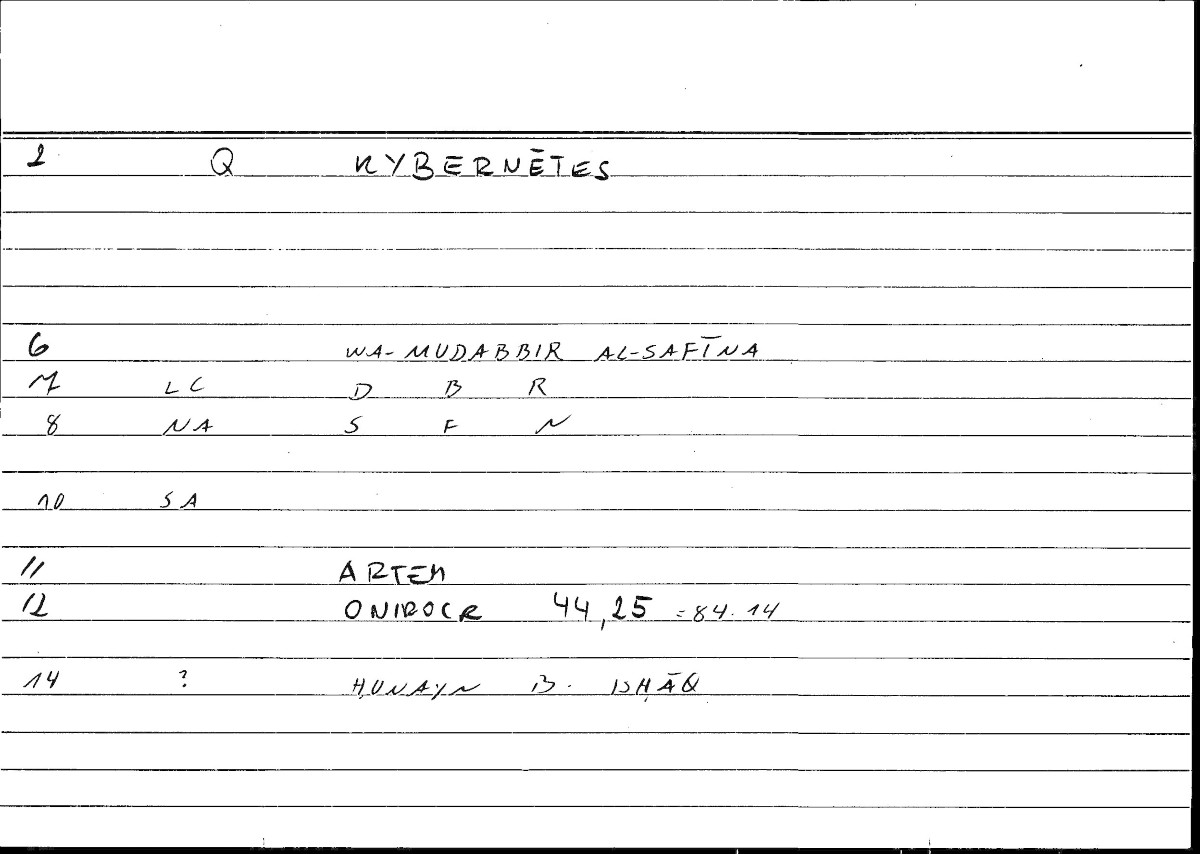 2 Q KYBERNĒTES
6 WA-MUDABBIR AL-SAFĪNA
7 LC D B R
8 NA S F N
10 SA
11 ARTEM
12 ONIROCR 44,25 =84.14
14 ? ḤUNAYN B. ISḤĀQ